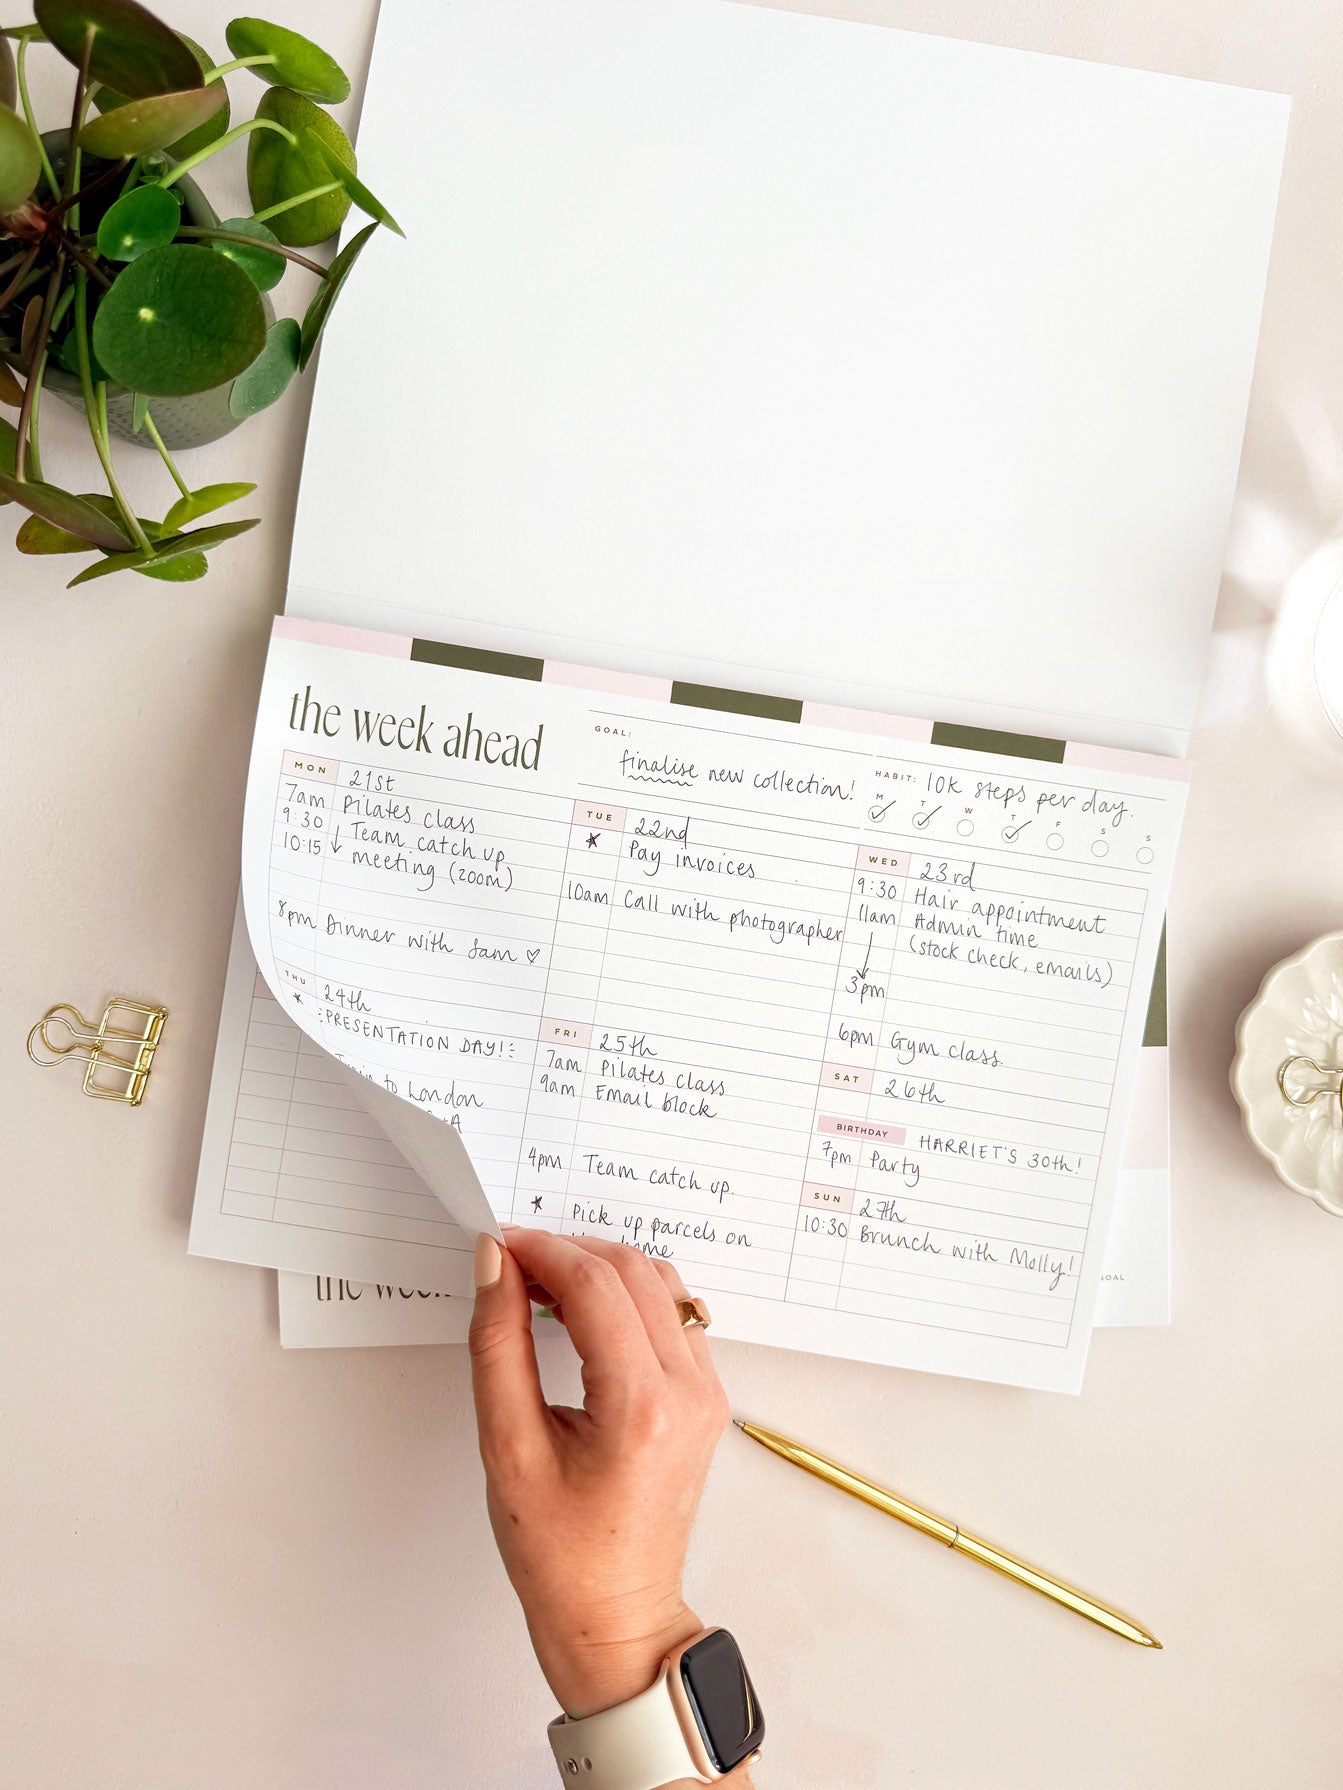 the week ahead
GOAL:
finalise new collection!
HABIT: 10k steps per day.
M T W T F S S
MON 21st
7am Pilates class
9:30 Team catch up
10:15 meeting (zoom)
8pm Dinner with Sam ♡
TUE 22nd
Pay invoices
10am Call with photographer
WED 23rd
9:30 Hair appointment
11am Admin time
(stock check, emails)
3pm
6pm Gym class
THU 24th
PRESENTATION DAY!
to London
FRI 25th
7am Pilates class
9am Email block
4pm Team catch up.
Pick up parcels on
SAT 26th
BIRTHDAY HARRIET'S 30th!
7pm Party
SUN 27th
10:30 Brunch with Molly!
GOAL
the